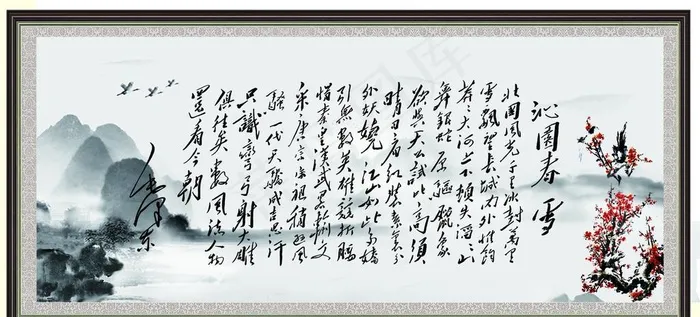 沁園春 雪
北国風光千里冰封萬里
雪飘望長城内外惟餘
莽莽大河上下頓失滔滔山
舞銀蛇原驅臘象
欲與天公試比高須
晴日看红装素裹分
外妖嬈 江山如此多嬌
引無數英雄競折腰
惜秦皇漢武略輸文
采唐宗宋祖稍遜風
騷一代天驕成吉思汗
只識彎弓射大雕
俱往矣數風流人物
還看今朝
毛澤東